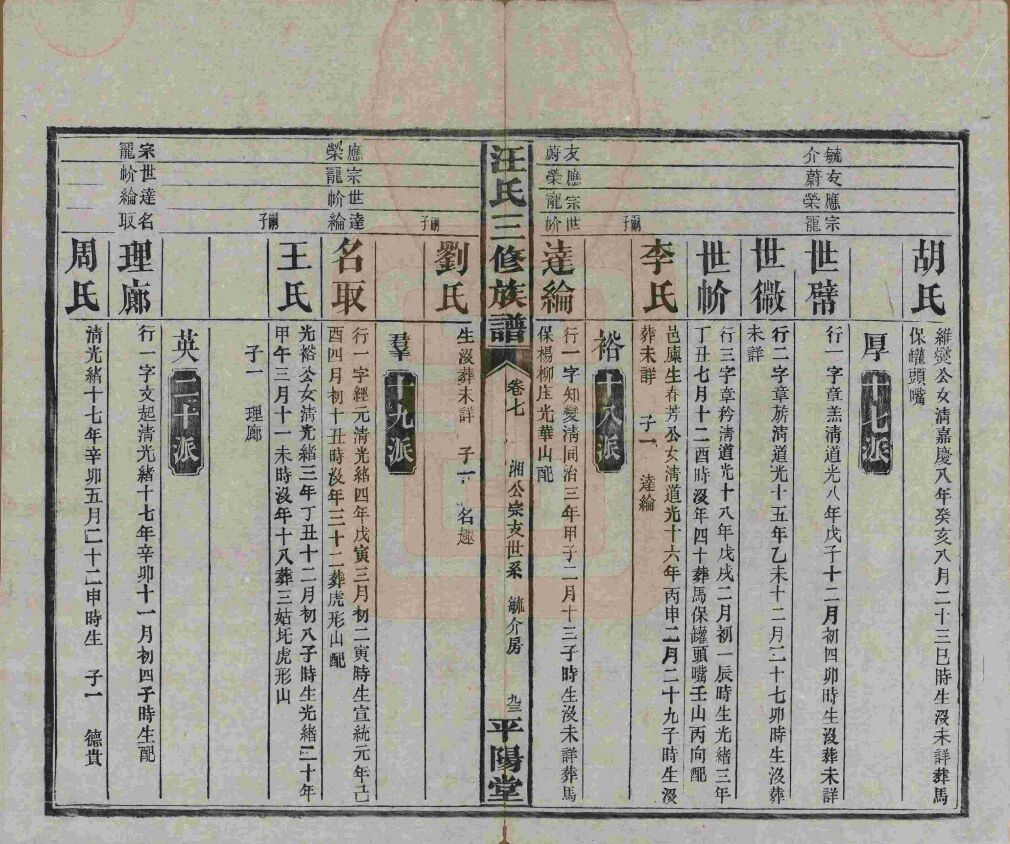 胡氏
維爕公女淸嘉慶八年癸亥八月二十三巳時生沒未詳葬馬
保罐頭嘴
厚 十七派
毓友應宗
介蔚榮寵
世幦
行一字章羔淸道光八年戊子十二月初四卯時生沒葬未詳
世微
行二字章旂淸道光十五年乙未十二月二十七卯時生沒葬
未詳
世㡏
行三字章矜淸道光十八年戊戌二月初一辰時生光緒三年
丁丑七月十二酉時沒年四十葬馬保罐頭嘴壬山丙向配
嗣子
李氏
邑庠生春芳公女淸道光十六年丙申二月二十九子時生沒
葬未詳 子一 達綸
裕 十八派
友應宗世
蔚榮寵㡏
達綸
行一字知變淸同治三年甲子二月十三子時生沒未詳葬馬
保楊柳庄光華山配
汪氏三修族譜
卷七 湘公宗支世系 毓介房
九三
平陽堂
嗣子
劉氏
生沒葬未詳 子一 名趣
羣 十九派
應宗世達
榮寵㡏綸
名取
行一字經元淸光緒四年戊寅三月初二寅時生宣統元年己
酉四月初十丑時沒年三十二葬虎形山配
嗣子
王氏
光裕公女淸光緒三年丁丑十二月初八子時生光緒二十年
甲午三月十一未時沒年十八葬三姑圫虎形山
子一 理廊
英 二十派
宗世達名
寵㡏綸取
理廊
行一字文起淸光緒十七年辛卯十一月初四子時生配
周氏
淸光緒十七年辛卯五月二十二申時生 子一 德貴